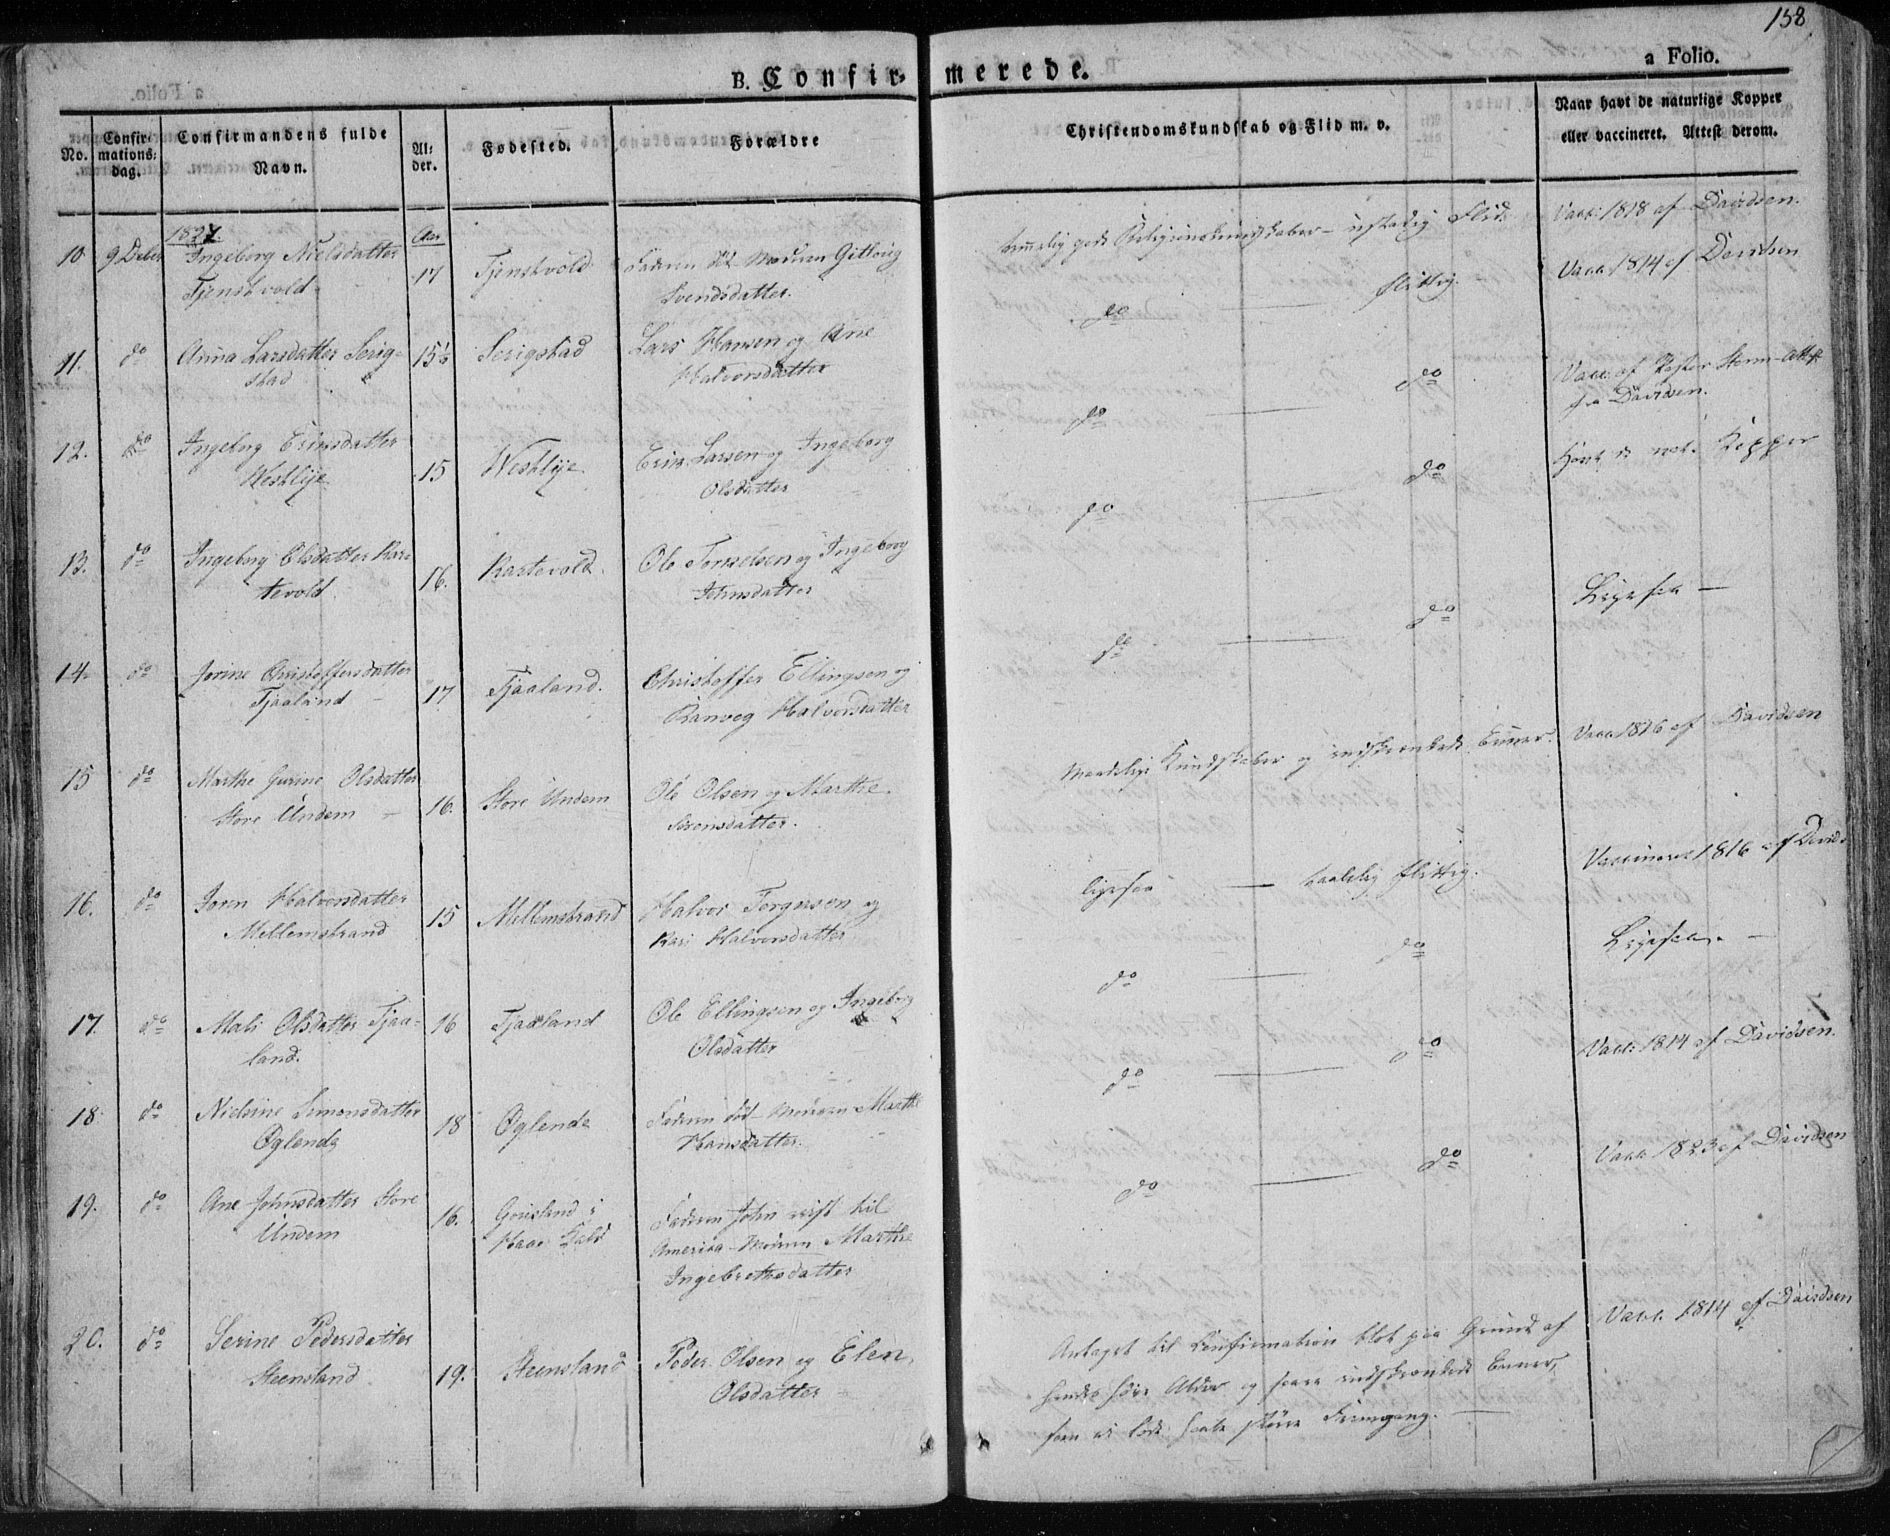 158
B. Confir- merede. a Folio.
No. Confirmations: dag. Confirmandens fulde Navn. Alder. Fødested. Forældre Christendomskundskab og Flid m. v. Naar havt de naturlige Kopper eller vaccineret. Attest derom.
1827. Aar
10 9 Decbr Ingeborg Nielsdatter 17 Tjenstvold Faderen død Moderen Gitlouig temelig gode Religionskundskaber - ustadig Flid. Vacc: 1818 af Davidsen.
Tjenstvold Svendsdatter.
11. do Anna Larsdatter Serig- 15½ Serigstad Lars Hansen og Ane do — flittig. Vacc 1814 af Davidsen
stad Halvorsdatter
12. do Ingeborg Ericsdatter 15 Westlye Eric Larsen og Ingeborg do — do Vacc: af Attest
Westlye Olsdatter fra Davidsen.
13. do Ingeborg Olsdatter Kar- 16. Kartevold Ole Torkelsen og Ingeborg do — do Havt d. nat. Kopper
tevold Johnsdatter
14. do Jorine Christoffersdatter 17 Tjaaland. Christoffer Ellingsen og do — do Ligesaa —
Tjaaland Ranveg Halvorsdatter
15 do Marthe Gurine Olsdatter 16. Store Undem Ole Olsen og Marthe Maadelige Kundskaber og indskrænkede Evner. Vacc 1816 af Davidsen
Store Undem Sørensdatter.
16. do Joren Halvorsdatter 15 Mellemstrand Halvor Torgersen og ligesaa — taalelig flittig. Vaccineret 1816 af Davids
Mellemstrand Kari Halvorsdatter
17. do Mali Olsdatter Tjaa- 16 Tjaaland Ole Ellingsen og Ingeborg do — do Ligesaa. —
land. Olsdatter
18 do Nielsine Simonsdatter 18 Øglende Faderen død Moderen Marthe do — do Vacc: 1814 af Davidsen.
Øglende Hansdatter.
19. do Ane Johnsdatter Store 16. i Faderen John reist til do — do Vacc 1823 af Davidsen
Undem Haae America - Moderen Marthe
Ingebretsdatter
20. do Serine Pedersdatter 19. Steensland Peder Olsen og Elen Antaget til Confirmation blot paa Grund af Vacc. 1814 af Davidsen
Steensland Olsdatter hendes høie Alder og saare indskrænkede Evner,
som ei lode haabe større Fremgang. —